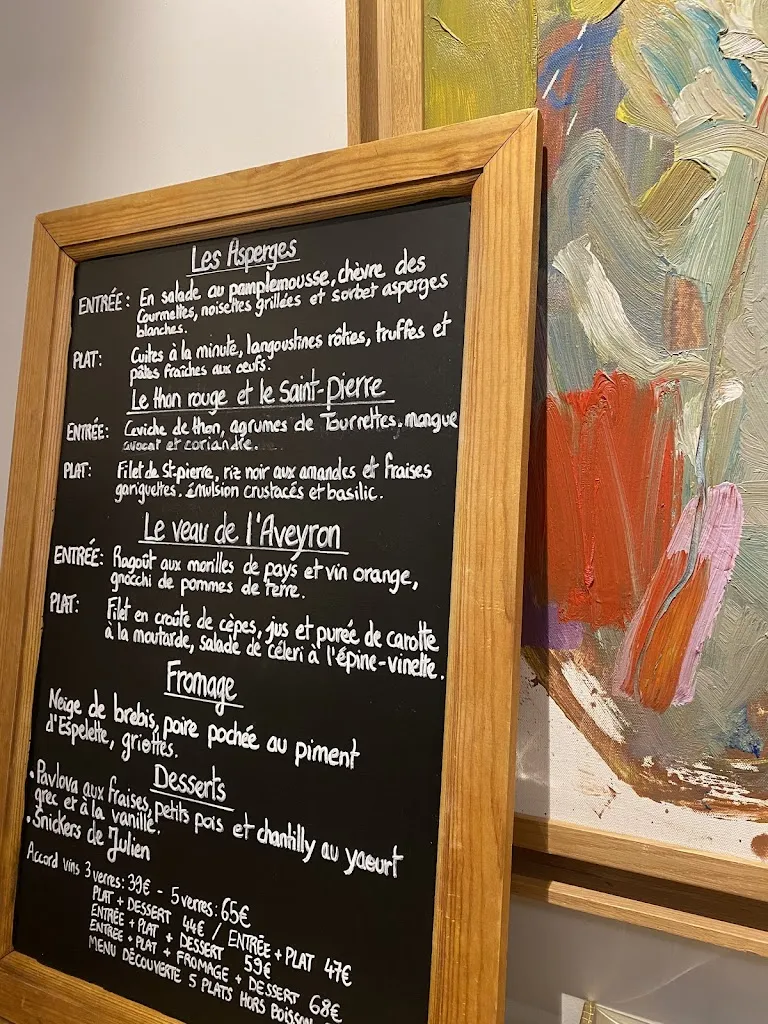 Les Asperges
ENTRÉE: En salade au pamplemousse, chèvre des
Courmettes, noisettes grillées et sorbet asperges
blanches.
PLAT: Cuites à la minute, langoustines rôties, truffes et
pâtes fraîches aux oeufs.
Le thon rouge et le saint-pierre
ENTRÉE: Ceviche de thon, agrumes de Tourrettes. mangue
avocat et coriandre.
PLAT: Filet de St-pierre, riz noir aux amandes et fraises
gariguettes. émulsion crustacés et basilic.
Le veau de l'Aveyron
ENTRÉE: Ragoût aux morilles de pays et vin orange,
gnocchi de pommes de terre.
PLAT: Filet en croûte de cèpes, jus et purée de carotte
à la moutarde, salade de céleri à l'épine-vinette.
Fromage
Neige de brebis, poire pochée au piment
d'Espelette, griottes.
Desserts
• Pavlova aux fraises, petits pois et chantilly au yaourt
grec et à la vanille.
• Snickers de Julien
Accord vins 3 verres: 39€ - 5 verres: 65€
PLAT + DESSERT 44€ / ENTRÉE + PLAT 47€
ENTRÉE + PLAT + DESSERT 59€
ENTRÉE + PLAT + FROMAGE + DESSERT 68€
MENU DÉCOUVERTE 5 PLATS HORS BOISSON